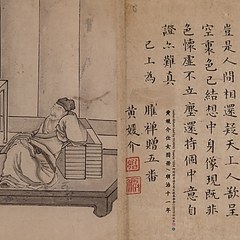 豈是人間相還疑天上人歌呈
空裏色已結想中身像現既非
色懷虛不立塵還持個中意自
證亦難真
已上為
禪贈五番
黃媛介